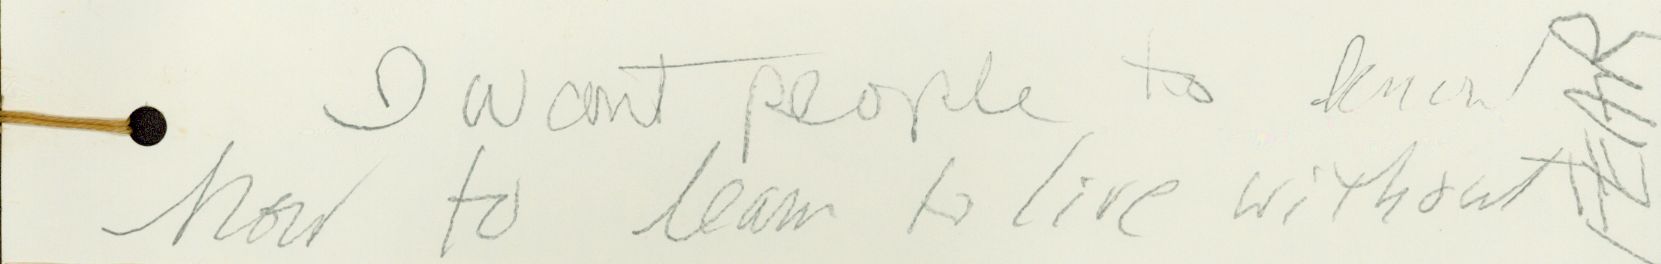 I want people to know
how to learn to live without
FEAR